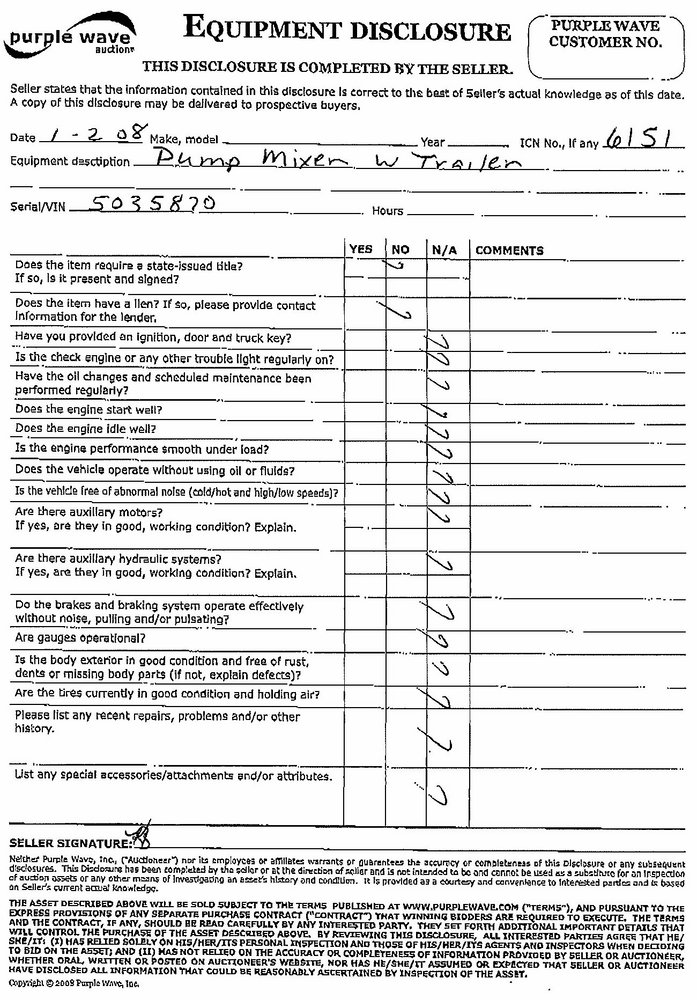 purple wave
auction®
EQUIPMENT DISCLOSURE
PURPLE WAVE
CUSTOMER NO.
THIS DISCLOSURE IS COMPLETED BY THE SELLER.
Seller states that the information contained in this disclosure is correct to the best of Seller's actual knowledge as of this date.
A copy of this disclosure may be delivered to prospective buyers.
Date 1-2 08 Make, model Year ICN No., If any 6151
Equipment description Pump Mixer w Trailer
Serial/VIN 5035870 Hours
YES NO N/A COMMENTS
Does the item require a state-issued title?
If so, is it present and signed?
Does the item have a lien? If so, please provide contact
information for the lender.
Have you provided an ignition, door and truck key?
Is the check engine or any other trouble light regularly on?
Have the oil changes and scheduled maintenance been
performed regularly?
Does the engine start well?
Does the engine idle well?
Is the engine performance smooth under load?
Does the vehicle operate without using oil or fluids?
Is the vehicle free of abnormal noise (cold/hot and high/low speeds)?
Are there auxillary motors?
If yes, are they in good, working condition? Explain.
Are there auxillary hydraulic systems?
If yes, are they in good, working condition? Explain.
Do the brakes and braking system operate effectively
without noise, pulling and/or pulsating?
Are gauges operational?
Is the body exterior in good condition and free of rust,
dents or missing body parts (if not, explain defects)?
Are the tires currently in good condition and holding air?
Please list any recent repairs, problems and/or other
history.
List any special accessories/attachments and/or attributes.
SELLER SIGNATURE:
Neither Purple Wave, Inc., ("Auctioneer") nor its employees or affiliates warrants or guarantees the accuracy or completeness of this Disclosure or any subsequent
disclosures. This Disclosure has been completed by the seller or at the direction of seller and is not intended to be and cannot be used as a substitute for an inspection
of auction assets or any other means of investigating an asset's history and condition. It is provided as a courtesy and convenience to interested parties and is based
on Seller's current actual knowledge.
THE ASSET DESCRIBED ABOVE WILL BE SOLD SUBJECT TO THE TERMS PUBLISHED AT WWW.PURPLEWAVE.COM ("TERMS"), AND PURSUANT TO THE
EXPRESS PROVISIONS OF ANY SEPARATE PURCHASE CONTRACT ("CONTRACT") THAT WINNING BIDDERS ARE REQUIRED TO EXECUTE. THE TERMS
AND THE CONTRACT, IF ANY, SHOULD BE READ CAREFULLY BY ANY INTERESTED PARTY. THEY SET FORTH ADDITIONAL IMPORTANT DETAILS THAT
WILL CONTROL THE PURCHASE OF THE ASSET DESCRIBED ABOVE. BY REVIEWING THIS DISCLOSURE, ALL INTERESTED PARTIES AGREE THAT HE/
SHE/IT: (I) HAS RELIED SOLELY ON HIS/HER/ITS PERSONAL INSPECTION AND THOSE OF HIS/HER/ITS AGENTS AND INSPECTORS WHEN DECIDING
TO BID ON THE ASSET; AND (II) HAS NOT RELIED ON THE ACCURACY OR COMPLETENESS OF INFORMATION PROVIDED BY SELLER OR AUCTIONEER,
WHETHER ORAL, WRITTEN OR POSTED ON AUCTIONEER'S WEBSITE, NOR HAS HE/SHE/IT ASSUMED OR EXPECTED THAT SELLER OR AUCTIONEER
HAVE DISCLOSED ALL INFORMATION THAT COULD BE REASONABLY ASCERTAINED BY INSPECTION OF THE ASSET.
Copyright © 2008 Purple Wave, Inc.